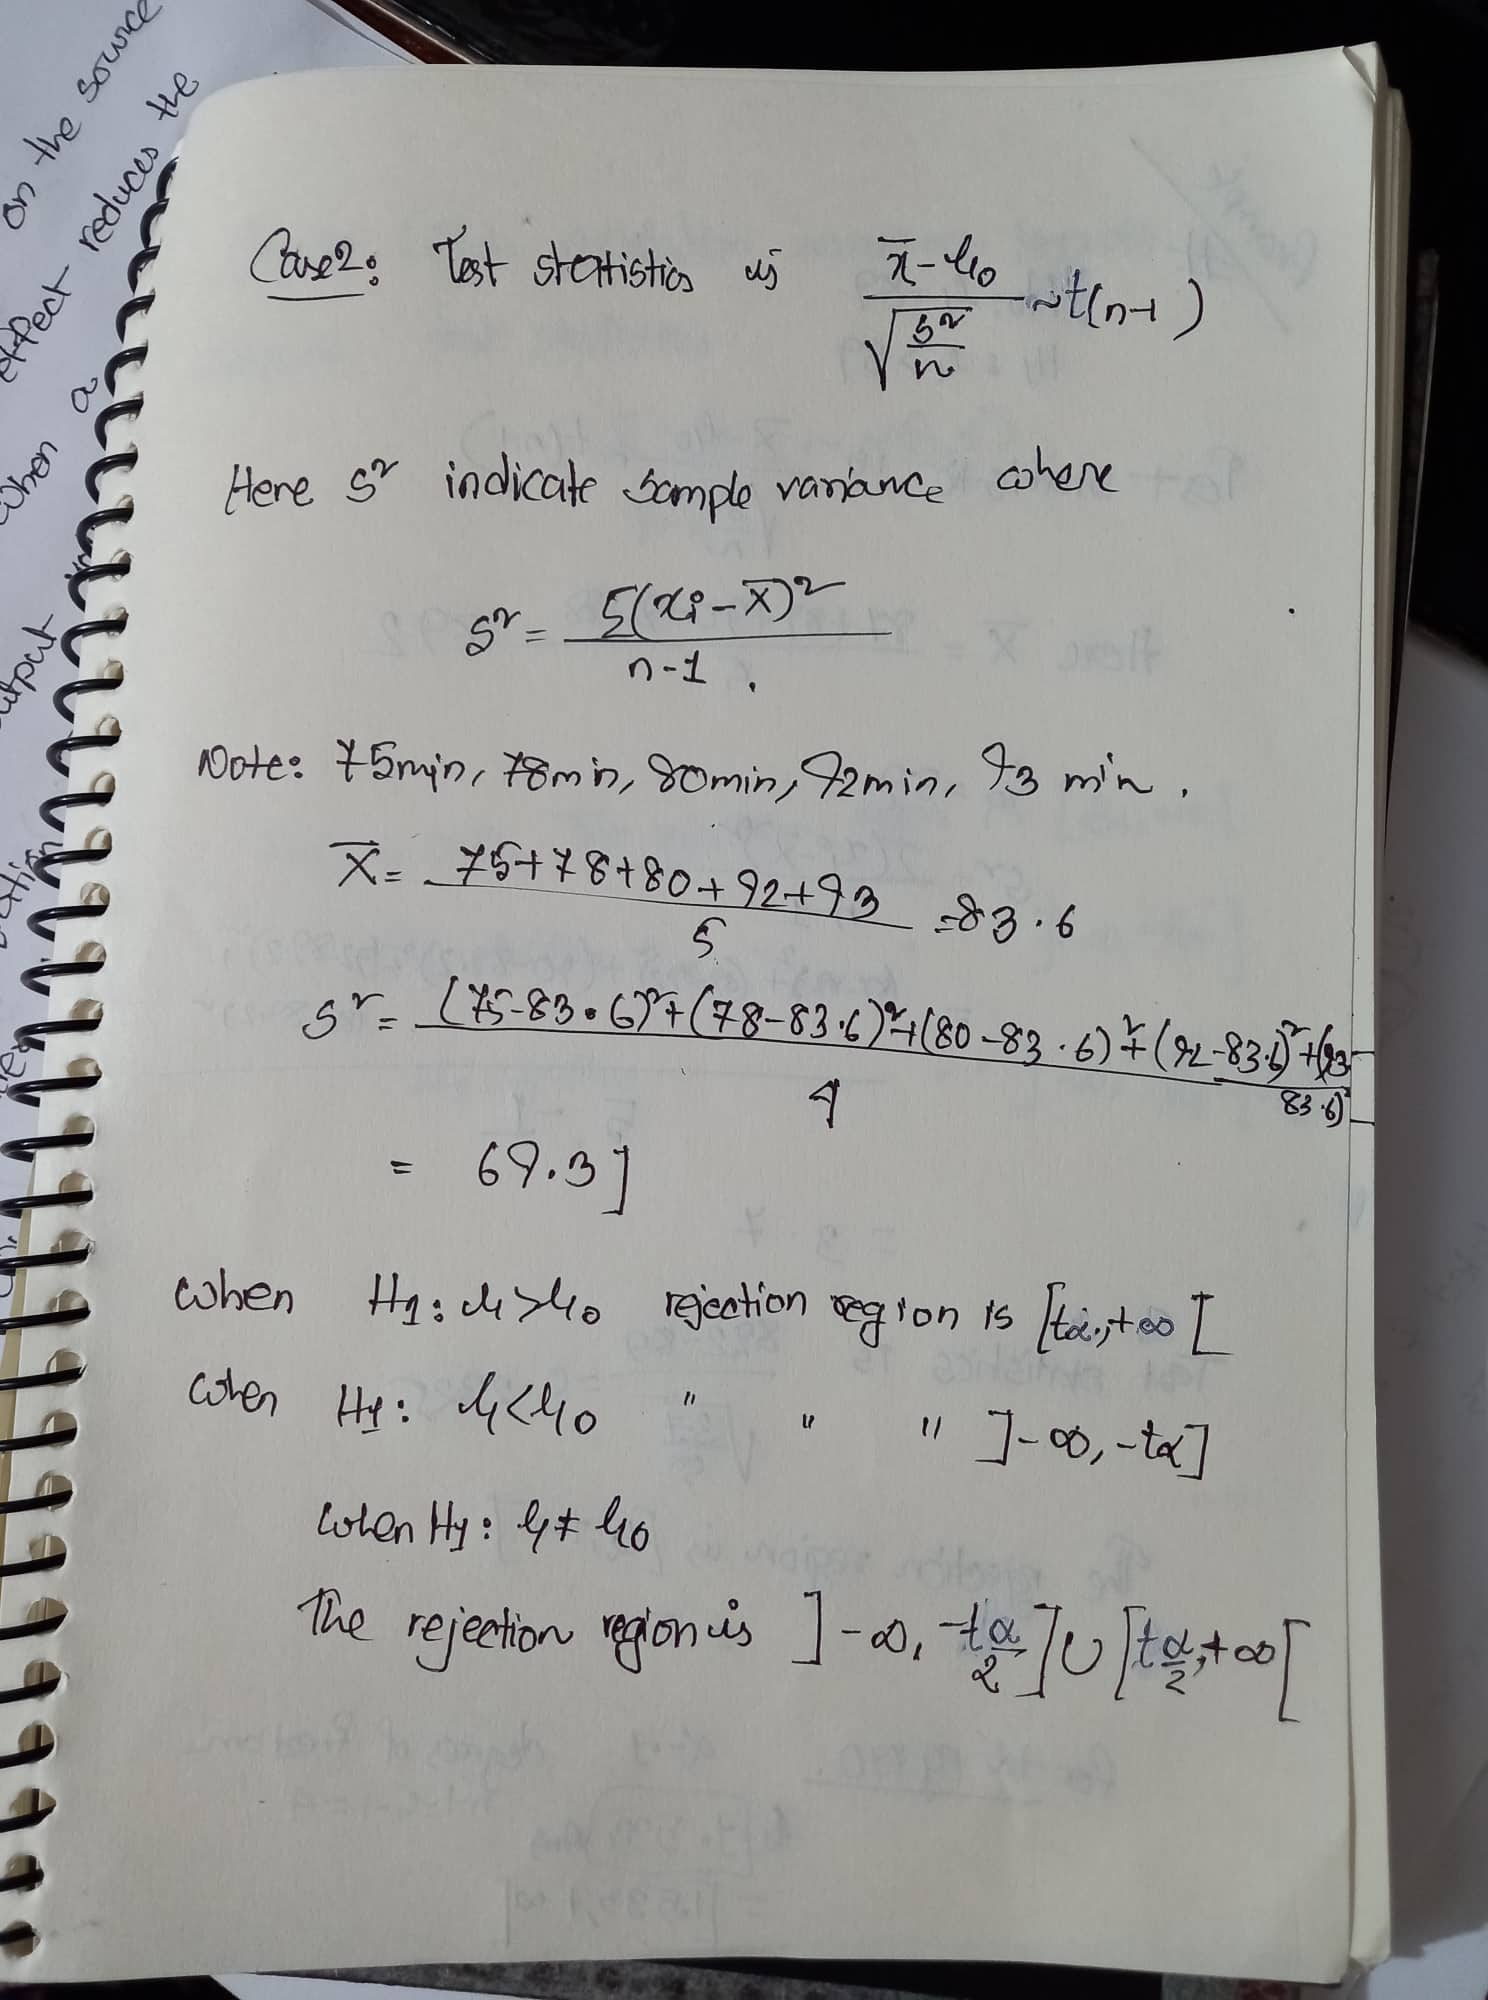 on the source
effect reduces the
when a
output
Case2: Test statistics is x̄-μ0 / √(s²/n) ~t(n-1)
Here s² indicate sample variance where
s² = Σ(xi-x̄)² / n-1 .
Note: 75min, 78min, 80min, 92min, 93 min .
x̄ = 75+78+80+92+93 / 5 =83.6
s² = (75-83.6)²+(78-83.6)²+(80-83.6)²+(92-83.6)²+(93-83.6)² / 4
= 69.3]
when H1: μ>μ0 rejection region is [tα,+∞[
when H1: μ<μ0 " " " ]-∞, -tα]
when H1: μ≠μ0
The rejection region is ]-∞, -tα/2]∪[tα/2,+∞[